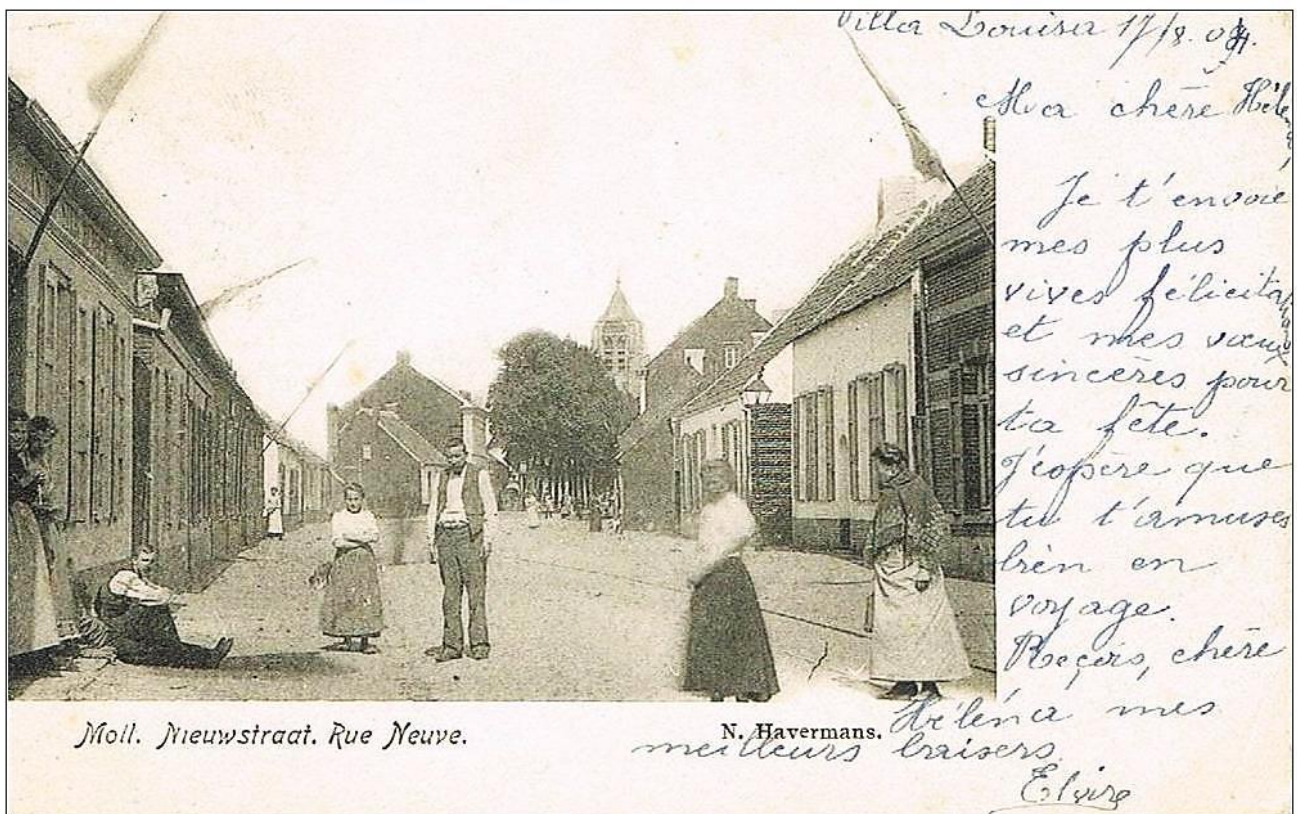 Villa Louisa 17/8.04.
Ma chère Héléna,
Je t'envoie
mes plus
vives félicitations
et mes vœux
sincères pour
ta fête.
J'espère que
tu t'amuses
bien en
voyage.
Reçois, chère
Héléna mes
meilleurs baisers
Elvire
Moll. Nieuwstraat. Rue Neuve.
N. Havermans.